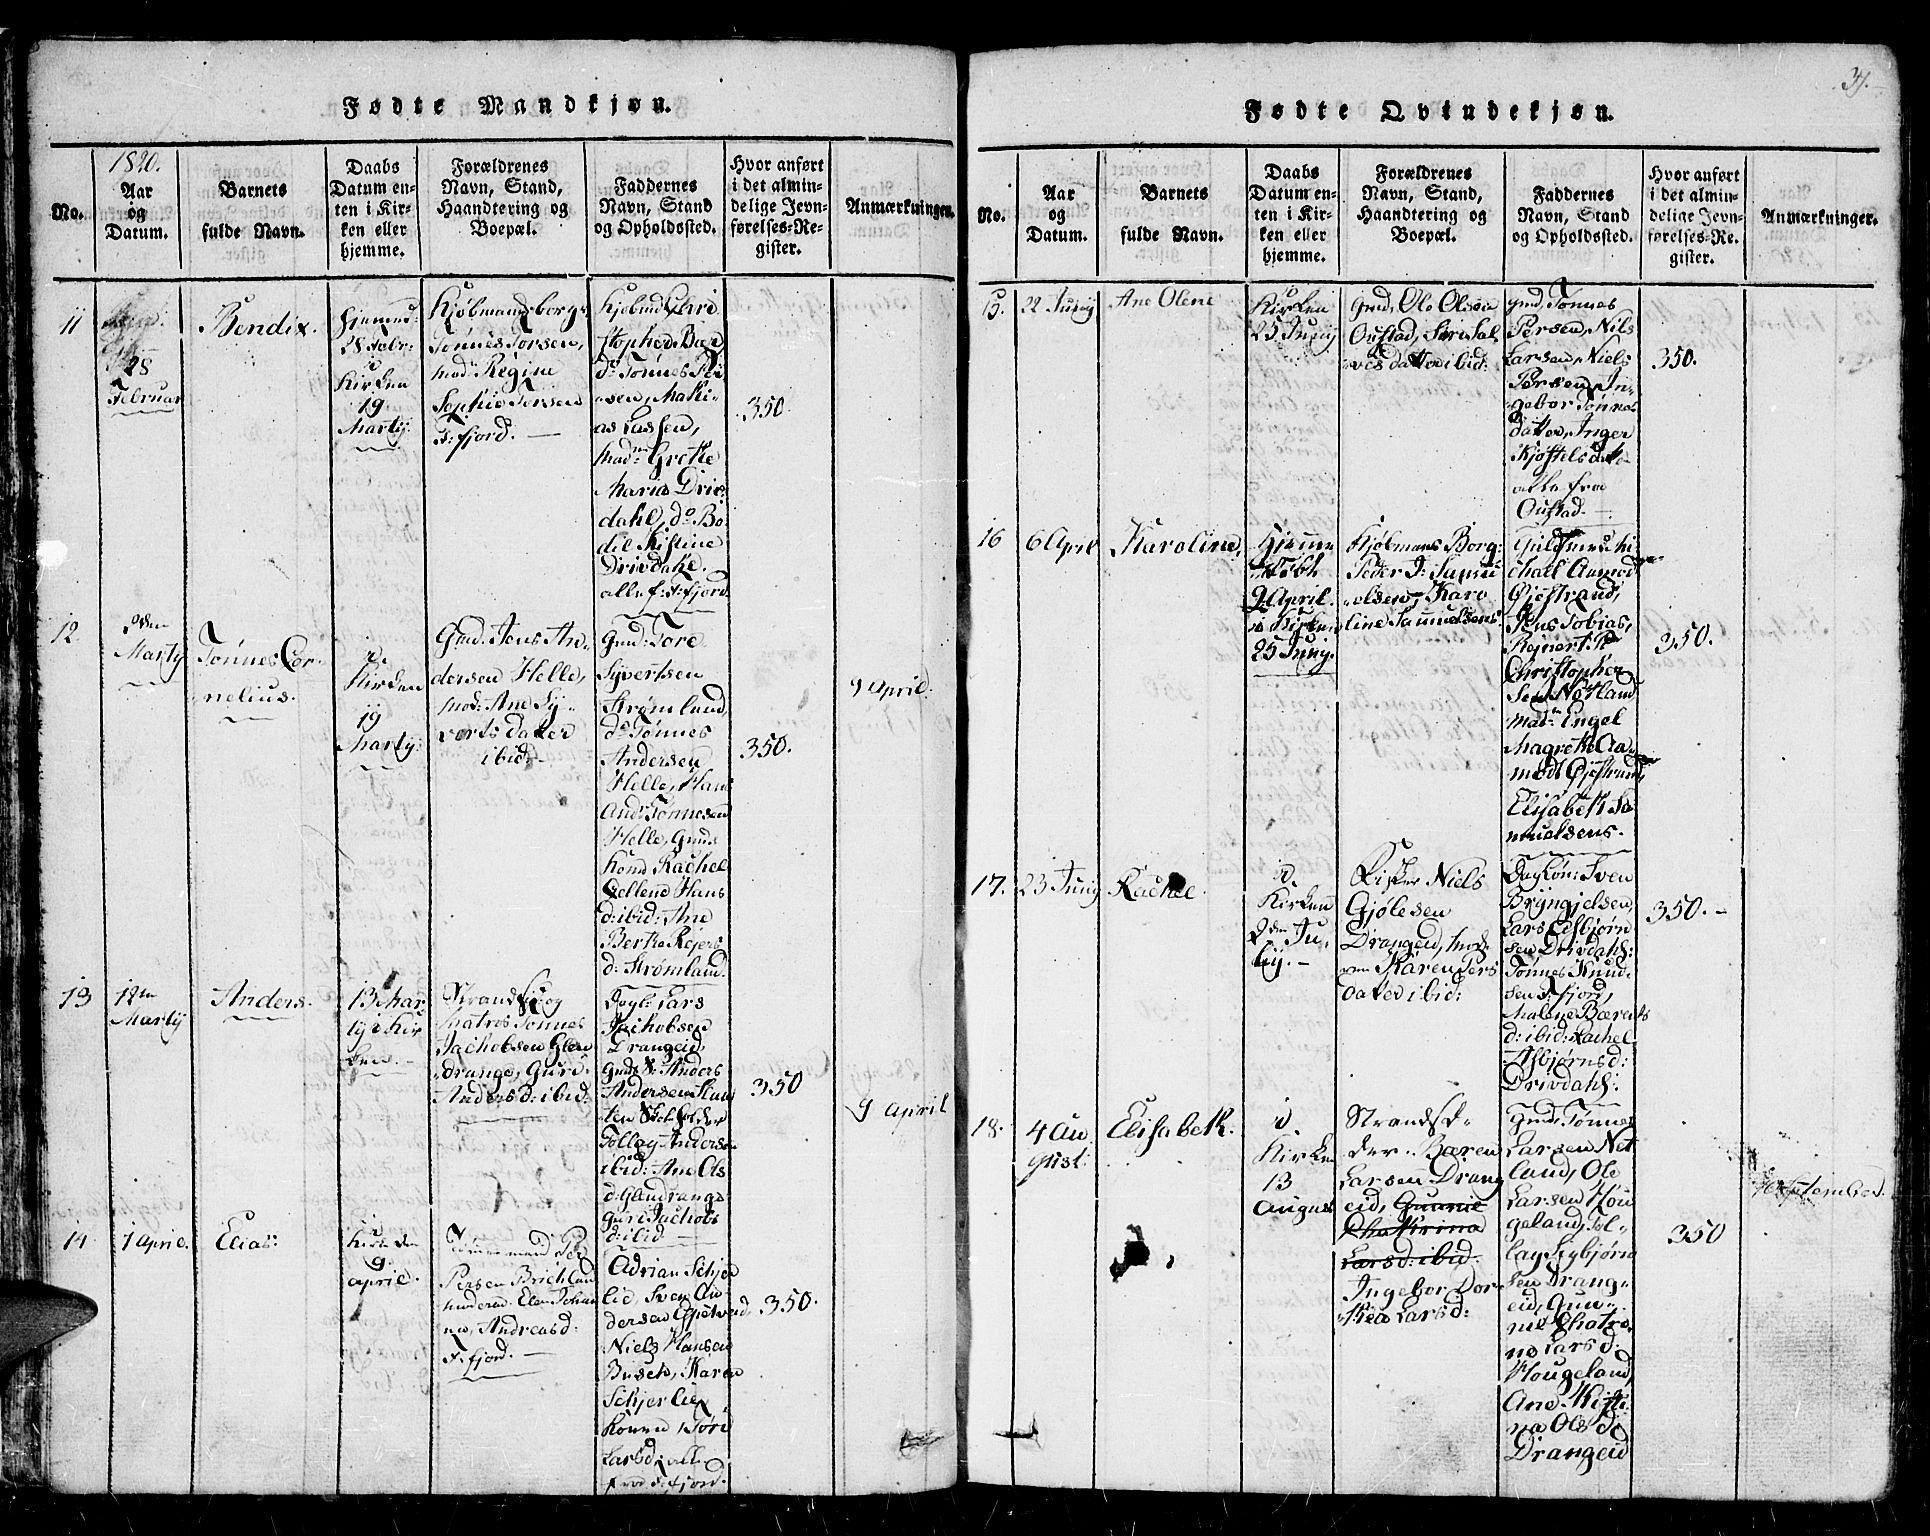 Fødte Mandkjøn.
1820.
No.
Aar
og
Datum.
Barnets
fulde Navn.
Daabs
Datum en-
ten i Kir-
ken eller
hjemme.
Forældrenes
Navn, Stand,
Haandtering og
Boepæl.
Faddernes
Navn, Stand
og Opholdssted.
Hvor anført
i det almin-
delige Jevn-
førelses-Re-
gister.
Anmærkninger.
11
28
Februar
Bendix.
Hjemme
28 Febr:
Kirken
19
Martij
Kjøbmandsborg:
Tønnes Torsen,
Mad: Regine
Sophie Torsen
F: fjord. —
stopher
do Tønnes
sen, Mathi-
as Lassen,
Madm Grethe
Maria Driv
dahl, do Bo-
del Kistine
Drivdahl.
alle f: F: fjord.
350.
12
Martij
Tønnes Cor-
nelius.
Kirken
19
Martij.
Gmd: Jens An-
dersen Helle,
Mod: Ane Sy-
verts datter
ibid:
Gmd: Tore
Syvertsen
Strømland,
do Tønnes
Andersen
Helle, Hans
Andr Tønnesen
Helle, Gmds
Kone Rachel
Hans
d: ibid: Ane
Berthe Rejers
d: Strømland.
350.
9 April.
13
Martij
Anders.
13 Mar
tij i Kir
ken. —
Strandsid: og
Matros Tønnes
Jachobsen Glen
drange, Guri
Anders d: ibid:
Dagl: Lars
Jachobsen
Drangeid,
Anders
Andersen
Tollag Andersen
ibid: Ane Ols
d: Glendrange
Guri Jachobs
d: ibid —
350
9 April
14
1 April.
Elias:
Kirken
9
April.
Persen
Andreas d:
F: fjord. —
Adrian Schjer
lid, Sven An-
dersen
Niels Hansen
Busch, Karen
Schjerlie,
Konen Tøri
Lars d: alle
fra F: fjord.
350.
37.
Fødte Qvindekjøn.
No.
Aar
og
Datum.
Barnets
fulde Navn.
Daabs
Datum en-
ten i Kir-
ken eller
hjemme.
Forældrenes
Navn, Stand,
Haandtering og
Boepæl.
Faddernes
Navn, Stand
og Opholdssted.
Hvor anført
i det almin-
delige Jevn-
førelses-Re-
gister.
Anmærkninger.
15.
22 Junij
Ane Olene
Kirken
25 Junij
Gmd: Ole Olsen
Oustad, Siri Sal
ves datter ibid:
Gmd: Tønnes
Persen, Nils
Larsen, Niels
Persen, In-
gebor Tønnes
datter, Inger
Kjøstels datt:
alle fra
Oustad. —
350.
16
6 April
Karoline,
Hjemme
døbt
9 April.
i Kirken
25 Junij.
Kjøbmans Borg:
Peder J: Samu
elsen, Karo
line Samuelsens
Guldsmed Mi
chael Aamod
Øjestrand,
Jens Tobias,
Rejnert P:
Christopher
sen Nøtland
Madm Engel
Magrethe Aa
modt Øjestrand,
Elisabeth Sa
muelsens.
350.
17.
23 Junij
Rachel.
i
Kirken
2den Ju-
lij. —
Fisker Niels
Gjølesen
Drangeid, Mod:
ren Karen Pers
datter ibid:
Dagløn: Sven
Bryngjelsen,
Lars Esbjørn
sen Drivdahl:
Tønnes Knud-
sen F: fjord,
Malene Bærents
d: ibid: Rachel
Asbjørns d:
Drivdahl:
350. —
18.
4 Au
gust:
Elisabeth.
i
Kirken
13
August
Strandsid-
der Bæren
Larsen Drang
eid, Gunnil
Chathrina
Lars d: ibid:
Ingebor Dor-
thea Lars d:
Gmd: Tønnes
Larsen Net
land, Ole
Larsen Hou
geland, Tol-
lag Sigbjørn
sen Drang-
eid, Gun-
nil Chatri-
na Lars d:
Hougeland,
Ane Kisti-
na Ols d:
Drangeid
350
September.